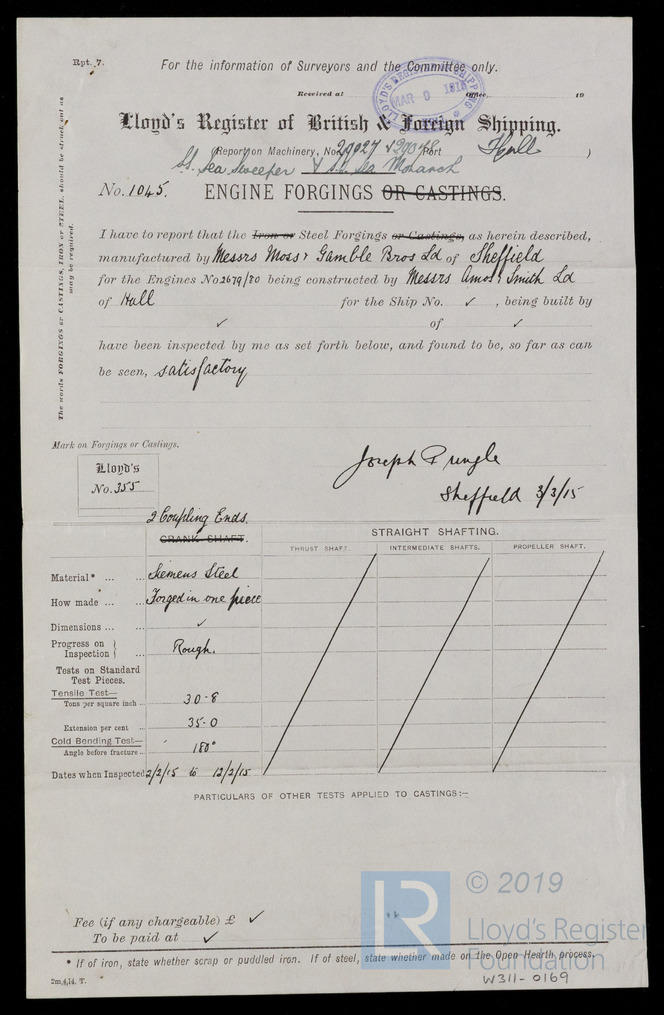 Rpt. 7.
For the information of Surveyors and the Committee only.
Received at Office, 19
LLOYD'S REGISTER SHIPPING MAR 1915
Lloyd's Register of British & Foreign Shipping.
(Report on Machinery, No. 29027 & 29048 Port Hull )
SS. Sea Sweeper & S.S. Sea Monarch
No. 1045. ENGINE FORGINGS OR CASTINGS.
I have to report that the Iron or Steel Forgings or Castings, as herein described,
manufactured by Messrs Moss & Gamble Bros Ld of Sheffield
for the Engines No 2679/80 being constructed by Messrs Amos & Smith Ld
of Hull for the Ship No. ✓ , being built by
✓ of ✓
have been inspected by me as set forth below, and found to be, so far as can
be seen, satisfactory
The words FORGINGS or CASTINGS, IRON or STEEL, should be struck out as
may be required.
Mark on Forgings or Castings.
Lloyd's
No. 355
Joseph Pringle
Sheffield 3/3/15
2 Coupling Ends.
CRANK SHAFT.
STRAIGHT SHAFTING.
THRUST SHAFT. INTERMEDIATE SHAFTS. PROPELLER SHAFT.
Material* ... ... Siemens Steel
How made ... ... Forged in one piece
Dimensions ... ... ✓
Progress on
Inspection } ... Rough.
Tests on Standard
Test Pieces.
Tensile Test—
Tons per square inch ... 30.8
Extension per cent ... 35.0
Cold Bending Test—
Angle before fracture ... 180°
Dates when Inspected 2/2/15 to 12/2/15
PARTICULARS OF OTHER TESTS APPLIED TO CASTINGS:—
Fee (if any chargeable) £ ✓
To be paid at ✓
* If of iron, state whether scrap or puddled iron. If of steel, state whether made on the Open Hearth process.
2m,4,14. T.
LR
© 2019
Lloyd's Register
Foundation
W311-0169